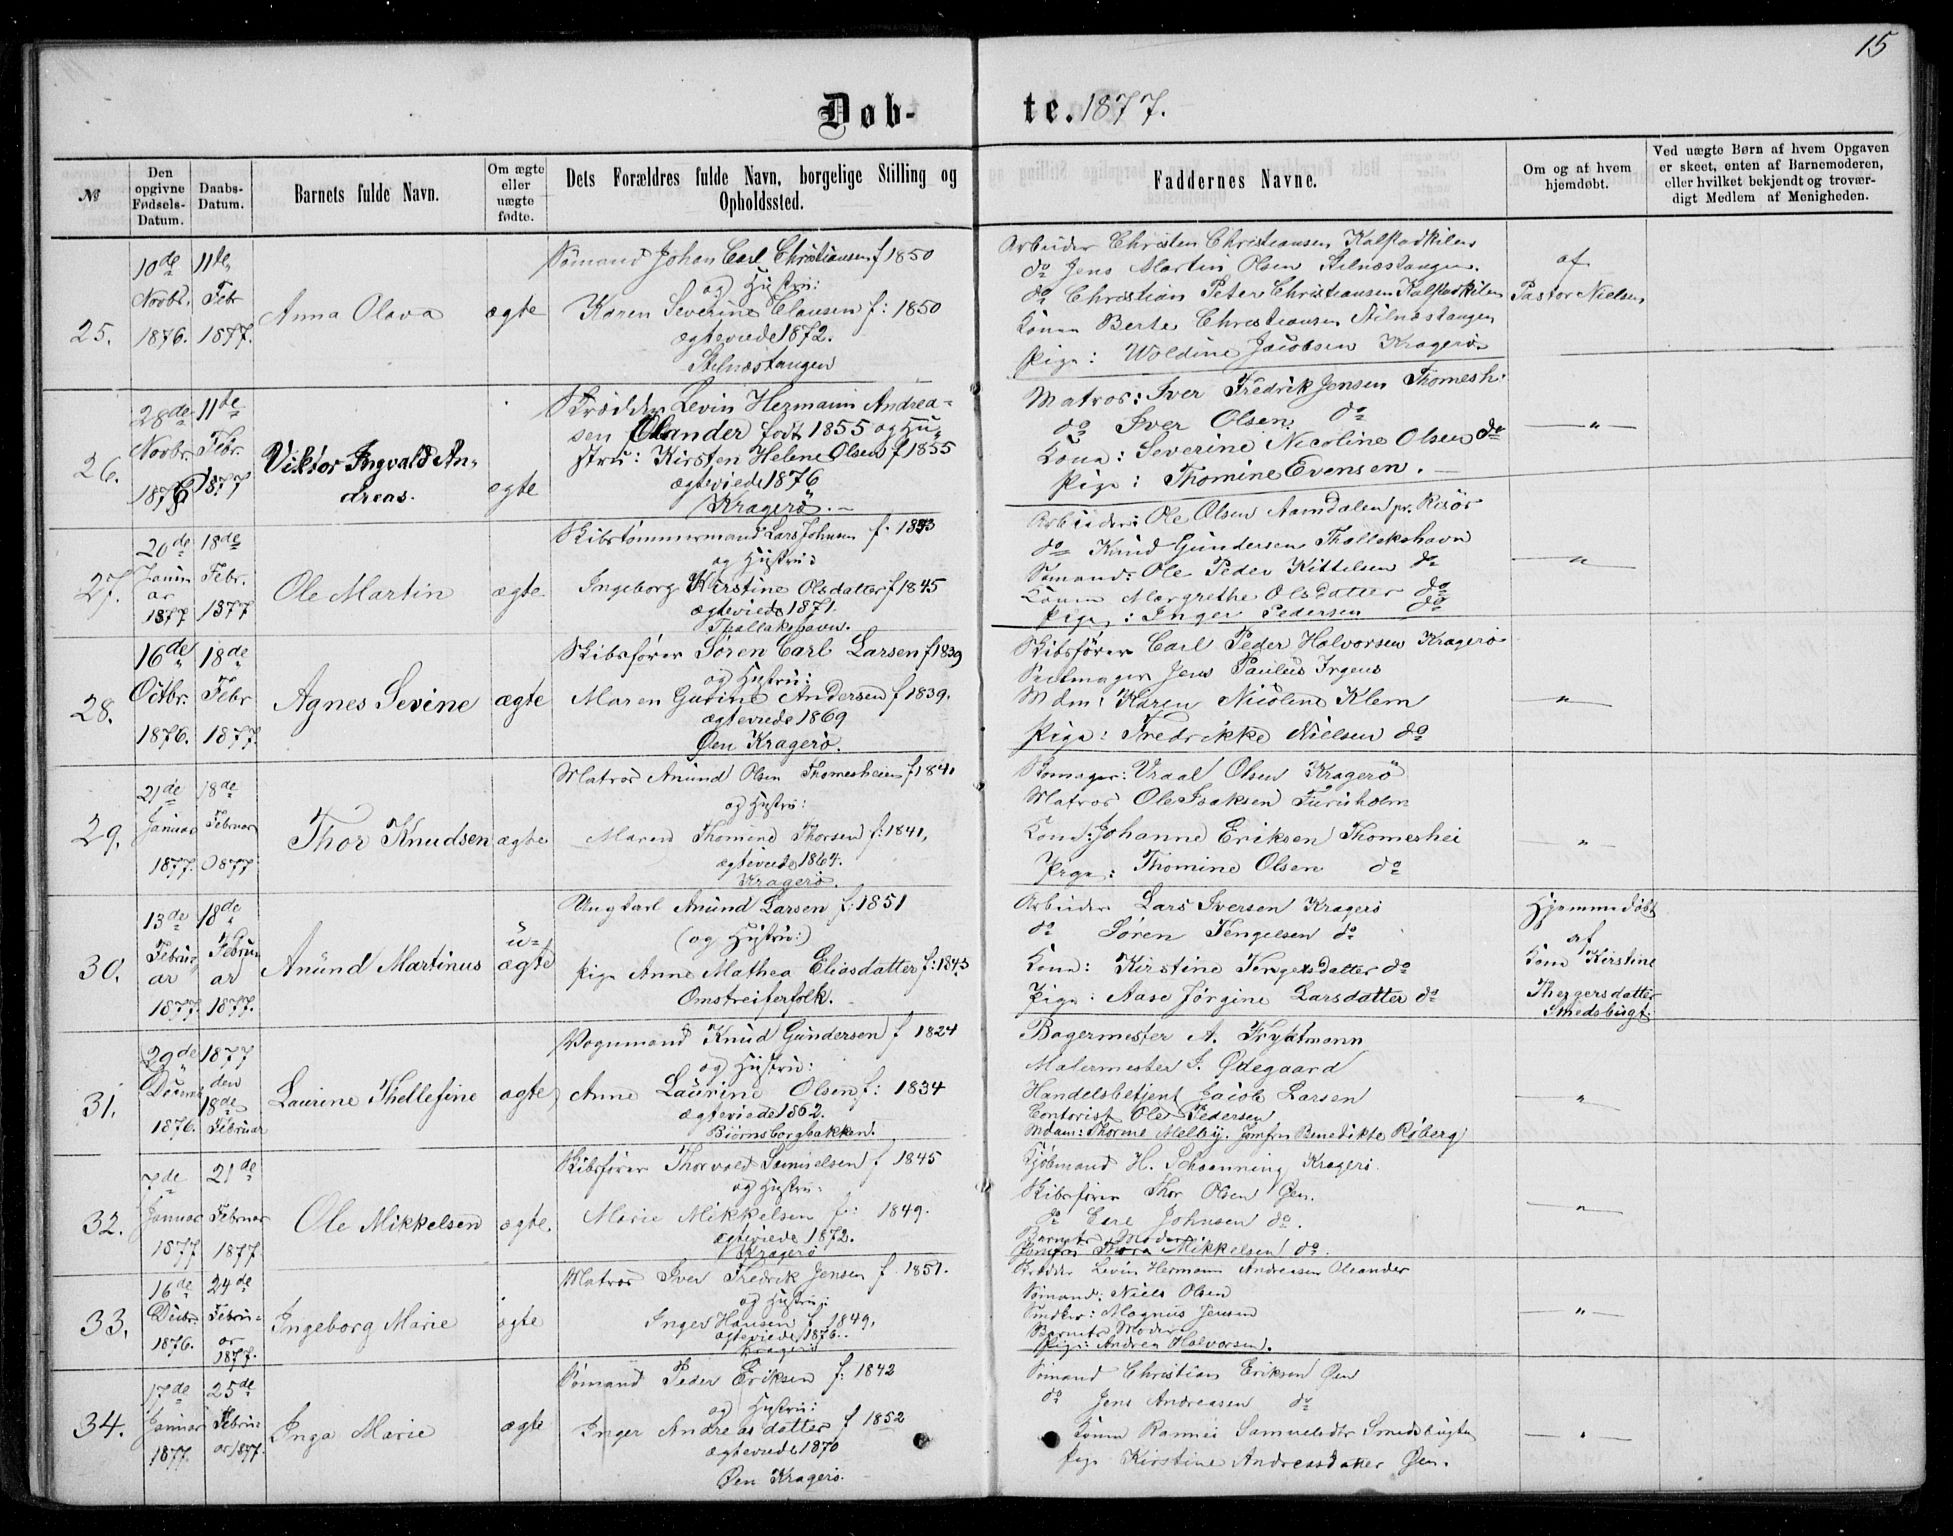 15
Døb-te. 1877.
№
Den opgivne Fødsels-Datum.
Daabs-Datum.
Barnets fulde Navn.
Om ægte eller uægte fødte.
Dets Forældres fulde Navn, borgelige Stilling og Opholdssted.
Faddernes Navne.
Om og af hvem hjemdøbt.
Ved uægte Børn af hvem Opgaven er skeet, enten af Barnemoderen, eller hvilket bekjendt og troværdigt Medlem af Menigheden.
25.
10de Novbr. 1876.
11te Febr 1877.
Anna Olava
ægte
Sømand Johan Carl Christiansen f 1850
og Hustru:
Karen Severine Clausen f: 1850
ægteviede 1872.
Stilnæstangen
Arbeider Christen Christiansen Kalstadkilen
do Jens Martin Olsen Stilnæstangen.
do Christian Peter Christiansen Kalstadkilen
Konen Berte Christiansen Stilnæstangen
Pige: Woldine Jacobsen Kragerø
af
Pastor Nielsen
26.
28de Novbr. 1876
11te Febr. 1877
Viktor Ingvald An-
dreas.
ægte
Skrædder Levin Hermann Andrea-
sen Oleander født 1855 og Hu-
stru: Kirsten Helene Olsen f 1855
ægteviede 1876
Kragerø. -
Matros: Iver Fredrik Jensen Thomesh.
do Iver Olsen do
Kona: Severine Nicoline Olsen do
Pige: Thomine Evensen. -
"
27.
20de Januar 1877
18de Febr. 1877
Ole Martin
ægte.
Skibstømmermand Lars Johnsen f. 1843
og Hustru:
Ingeborg Kirstine Olsdatter f 1845
ægteviede 1871.
Thallakshavn.
Arbeider: Ole Olsen Aamdalen pr. Risør
do Knud Gundersen Thallakshavn
Sømand: Ole Peder Kittelsen do
Konen Margrethe Olsdatter do
Pige: Inger Pedersen do
"
28.
16de Octbr. 1876.
18de Febr 1877.
Agnes Sevine
ægte
Skibsfører Søren Carl Larsen f 1839
og Hustru:
Maren Gurine Andersen f 1839.
ægteviede 1869
Øen Kragerø.
Skibsfører Carl Peder Halvorsen Kragerø
Jens Paulus Irgens
Mdm: Karen Nicoline Klem
Pige: Fredrikke Nielsen do
"
29.
21de Januar 1877.
18de Februar 1877
Thor Knudsen
ægte
Matros Anund Olsen Thomesheien f 1841
og Hustru:
Maren Thomine Thorsen f: 1841,
ægteviede 1864.
Kragerø.
Skomager: Vraal Olsen Kragerø
Matros Ole Isaksen Furuholm
Kone: Johanne Eriksen Thomeshei
Pige: Thomine Olsen do
"
30.
13de Februar 1877.
18de Februar 1877.
Anund Martinus
u-
ægte
Ungkarl Anund Larsen f: 1851
(og Hustru:)
Pige Anne Mathea Eliasdatter f: 1843
Omstreiferfolk.
Arbeider Lars Iversen Kragerø
do Søren Tengelsen do
Kone: Kirstine Tengelsdatter do
Pige: Aase Jørgine Larsdatter do
Hjemmedøbt
af
Kone Kirstine
Thergersdatter
Smedsbugt.
31.
29de 1876.
1877 den 18de Februar
Laurine Thellefine
ægte
Vognmand Knud Gundersen f 1824
og Hustru:
Anne Laurine Olsen f: 1834
ægteviede 1862.
Biørnsborgbakken.
Bagermester A. Tryktmann
Malermester J. Ødegaard
Handelsbetjent Jacob Larsen
Contorist Ole Pedersen
Mdam: Thorine Melby. Jomfru Benedikte Røberg
"
32.
7de Januar 1877
21de Februar 1877
Ole Mikkelsen
ægte.
Skibsfører Thorvald Samuelsen f 1845
og Hustru:
Marie Mikkelsen f: 1849.
ægteviede 1872.
Kragerø
Kjøbmand H. Schanning Kragerø.
Skibsfører Thor Olsen Øen.
do Carl Johnsen do.
Barnets Moder
Jomfru Thora Mikkelsen do.
"
33.
16de Decbr. 1876.
24de Februar 1877.
Ingeborg Marie
ægte
Matros Iver Fredrik Jensen f. 1851.
og Hustru:
Inger Hansen f 1849.
ægteviede 1876.
Kragerø
Skrædder Levin Hermann Andreasen Oleander
Sømand: Niels Olsen
Snedker: Magnus Jensen
Barnets Moder
Pige: Andrea Halvorsen.
"
34.
17de Januar 1877.
25de Februar 1877.
Inga Marie
ægte
Sømand Peder Eriksen f: 1842
og Hustru:
Inger Andreasdatter f 1852
ægteviede 1870
Øen Kragerø.
Sømand Christian Eriksen Øen
do Jens Andreasen do
Konen Rannei Samuelsdtr Smedsbugten
Pige Kirstine Andreasdatter Øen.
"